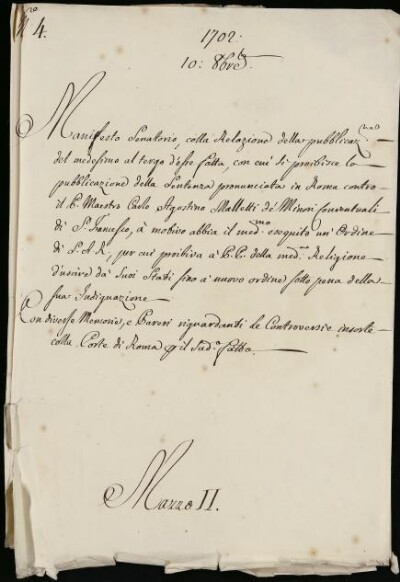 N.ro 4.
1702.
10: 8bre
Manifesto Senatorio, colla Relazione della pubblicaz.ne
del medesimo al tergo d'esso fatta, con cui si proibisce la
pubblicazione della Sentenza pronunciata in Roma contro
il P. Maestro Carlo Agostino Malletti de' Minori Conventuali
di S. Francesco, à motivo abbia il med.mo eseguito un'Ordine
di S.A.R., per cui proibiva à P.P. della med.ma Religione
d'uscire da' Suoi Stati sino à nuovo ordine sotto pena della
sua Indignazione
Con diverse Memorie, e Pareri riguardanti le Controversie insorte
colla Corte di Roma il Sud.o fatto.
Mazzo II.